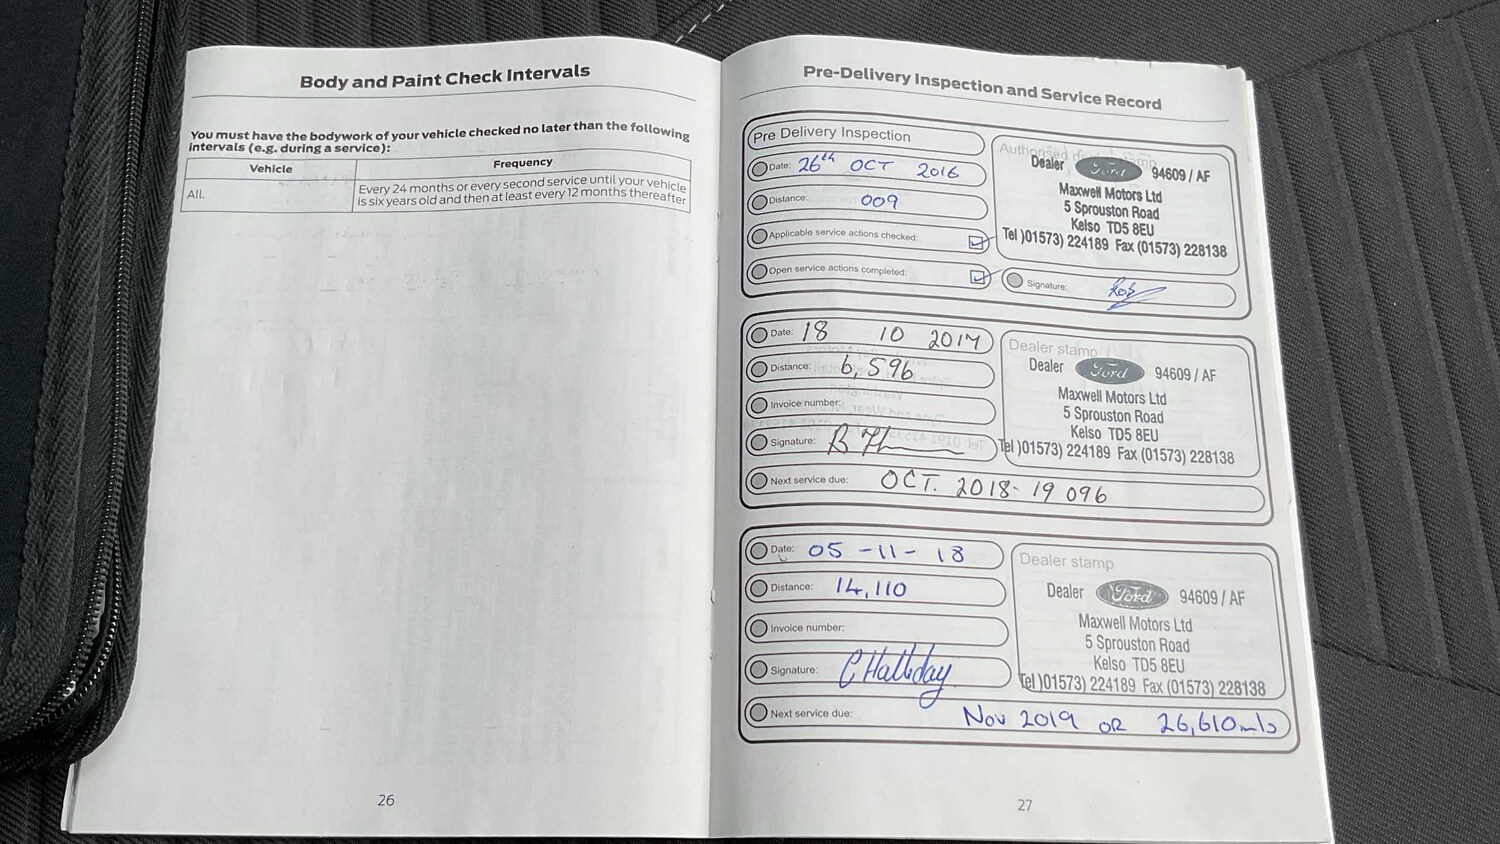 Body and Paint Check Intervals
You must have the bodywork of your vehicle checked no later than the following
intervals (e.g. during a service):
Vehicle Frequency
All. Every 24 months or every second service until your vehicle
is six years old and then at least every 12 months thereafter
26
Pre-Delivery Inspection and Service Record
Pre Delivery Inspection
Date: 26th OCT 2016
Distance: 009
Applicable service actions checked:
Open service actions completed:
Dealer Ford 94609 / AF
Maxwell Motors Ltd
5 Sprouston Road
Kelso TD5 8EU
Tel )01573) 224189 Fax (01573) 228138
Signature:
Date: 18 10 2017
Distance: 6,596
Invoice number:
Signature:
Dealer stamp
Dealer Ford 94609 / AF
Maxwell Motors Ltd
5 Sprouston Road
Kelso TD5 8EU
Tel )01573) 224189 Fax (01573) 228138
Next service due: OCT. 2018- 19 096
Date: 05 -11- 18
Distance: 14,110
Invoice number:
Signature: C Halliday
Dealer stamp
Dealer Ford 94609 / AF
Maxwell Motors Ltd
5 Sprouston Road
Kelso TD5 8EU
Tel )01573) 224189 Fax (01573) 228138
Next service due: Nov 2019 OR 26,610 mls
27